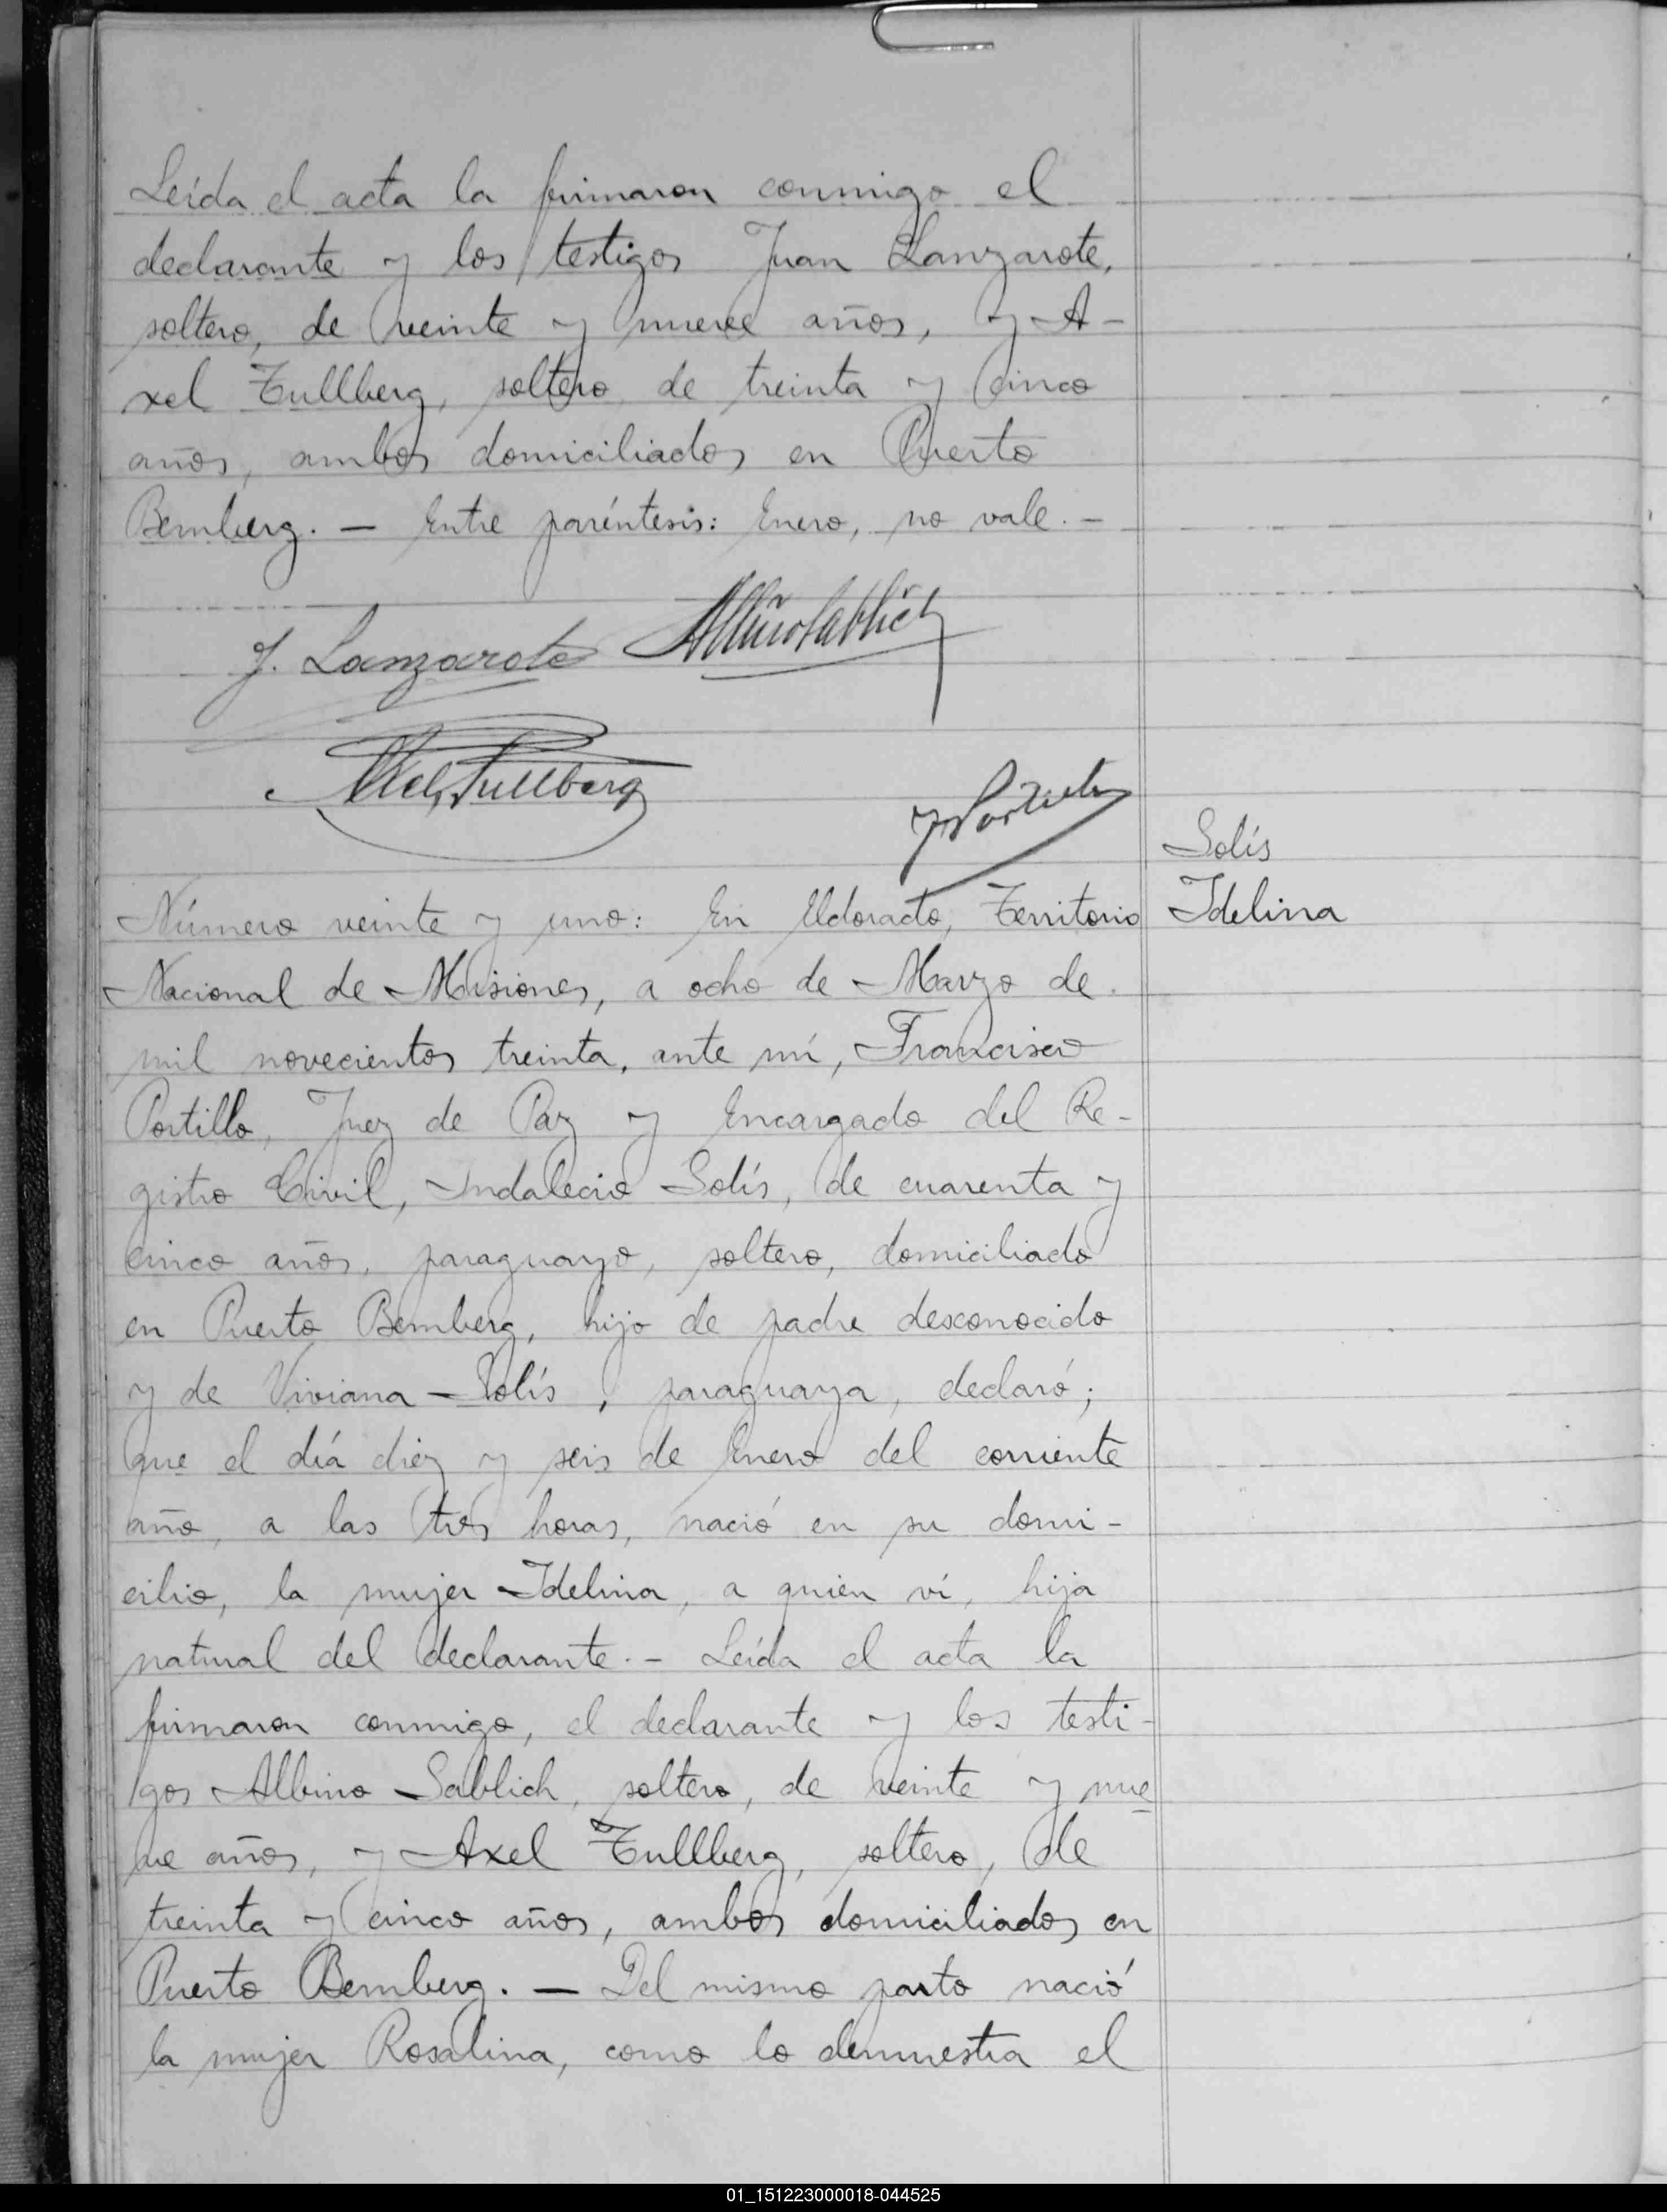 Leída el acta la firmaron conmigo el
declarante y los testigos Juan Lanzarote,
soltero, de veinte y nueve años, y A-
xel Tullberg, soltero, de treinta y cinco
años, ambos domiciliados en Puerto
Bemberg. — Entre paréntesis: Enero, no vale. -
J. Lanzarote Albino Sablich
Axel Tullberg
Solís
Idelina
Número veinte y uno: En Eldorado, Territorio
Nacional de Misiones, a ocho de Marzo de
mil novecientos treinta, ante mí, Francisco
Portillo, Juez de Paz y Encargado del Re-
gistro Civil, Indalecio Solís, de cuarenta y
cinco años, paraguayo, soltero, domiciliado
en Puerto Bemberg, hijo de padre desconocido
y de Viviana Solís, paraguaya, declaró;
que el día diez y seis de Enero del corriente
año, a las tres horas, nació en su domi-
cilio, la mujer Idelina, a quien ví, hija
natural del declarante. - Leída el acta la
firmaron conmigo, el declarante y los testi-
gos Albino Sablich, soltero, de veinte y nue
ve años, y Axel Tullberg, soltero, de
treinta y cinco años, ambos domiciliados en
Puerto Bemberg. — Del mismo parto nació
la mujer Rosalina, como lo demuestra el
01_151223000018-044525